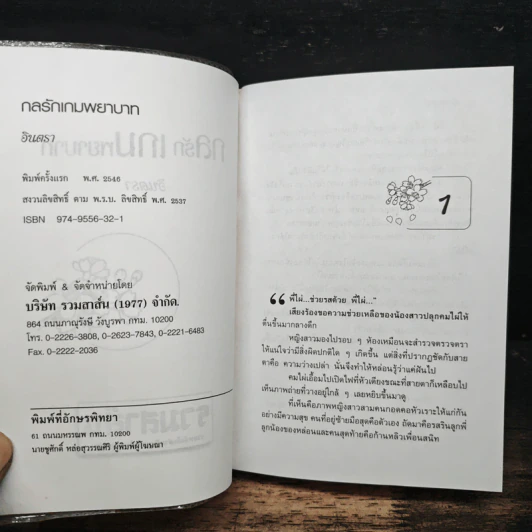 กลรักเกมพยาบาท
อินตรา
พิมพ์ครั้งแรก พ.ศ. 2546
สงวนลิขสิทธิ์ ตาม พ.ร.บ. ลิขสิทธิ์ พ.ศ. 2537
ISBN 974-9556-32-1
จัดพิมพ์ & จัดจำหน่ายโดย
บริษัท รวมสาส์น (1977) จำกัด.
864 ถนนภาณุรังษี วังบูรพา กทม. 10200
โทร. 0-2226-3808, 0-2623-7843, 0-2221-6483
Fax. 0-2222-2036
พิมพ์ที่อักษรพิทยา
61 ถนนมหรรณพ กทม. 10200
นายชูศักดิ์ หล่อสุวรรณศิริ ผู้พิมพ์ผู้โฆษณา
1
“พี่ไผ่...ช่วยรสด้วย พี่ไผ่...”
เสียงร้องขอความช่วยเหลือของน้องสาวปลุกคมไผ่ให้
ตื่นขึ้นมากลางดึก
หญิงสาวมองไปรอบ ๆ ห้องเหมือนจะสำรวจตรวจตรา
ให้แน่ใจว่ามีสิ่งผิดปกติใด ๆ เกิดขึ้น แต่สิ่งที่ปรากฏชัดกับสาย
ตาคือ ความว่างเปล่า นั่นจึงทำให้หล่อนรู้ว่าแค่ฝันไป
คมไผ่เอื้อมไปเปิดไฟที่หัวเตียงขณะที่สายตาก็เหลือบไป
เห็นภาพถ่ายที่วางอยู่ใกล้ ๆ เลยหยิบขึ้นมาดู
ที่เห็นคือภาพหญิงสาวสามคนกอดคอหัวเราะให้แก่กัน
อย่างมีความสุข คนที่อยู่ซ้ายมือสุดคือตัวเอง ถัดมาคือรสรินลูกพี่
ลูกน้องของหล่อนและคนสุดท้ายคือก้านหลิวเพื่อนสนิท